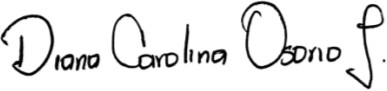 Diana Carolina Osorio